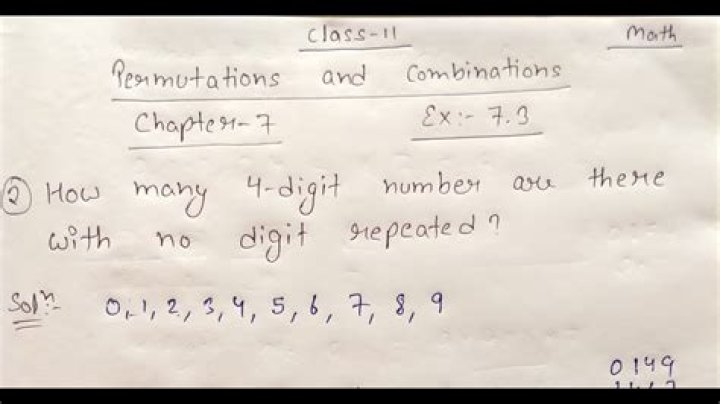 Class-11 Math
Permutations and Combinations
Chapter-7 Ex:- 7.3
② How many 4-digit number are there
with no digit repeated?
Solⁿ:- 0, 1, 2, 3, 4, 5, 6, 7, 8, 9
0149